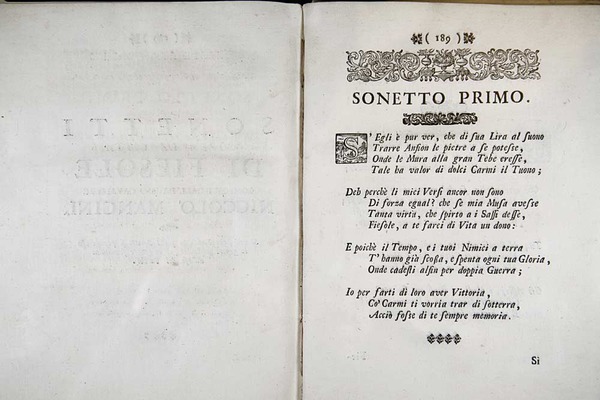 ( 189 )
SONETTO PRIMO.
S' Egli è pur ver, che di sua Lira al suono
Trarre Anfion le pietre a se potesse,
Onde le Mura alla gran Tebe eresse,
Tale ha valor di dolci Carmi il Tuono;
Deh perchè li miei Versi ancor non sono
Di forza egual? che se mia Musa avesse
Tanta virtù, che spirto a i Sassi desse,
Fiesole, a te farei di Vita un dono:
E poichè il Tempo, e i tuoi Nimici a terra
T' hanno già scossa, e spenta ogni tua Gloria,
Onde cadesti alfin per doppia Guerra;
Io per farti di loro aver Vittoria,
Co' Carmi ti vorria trar di sotterra,
Acciò fosse di te sempre memoria.
Si